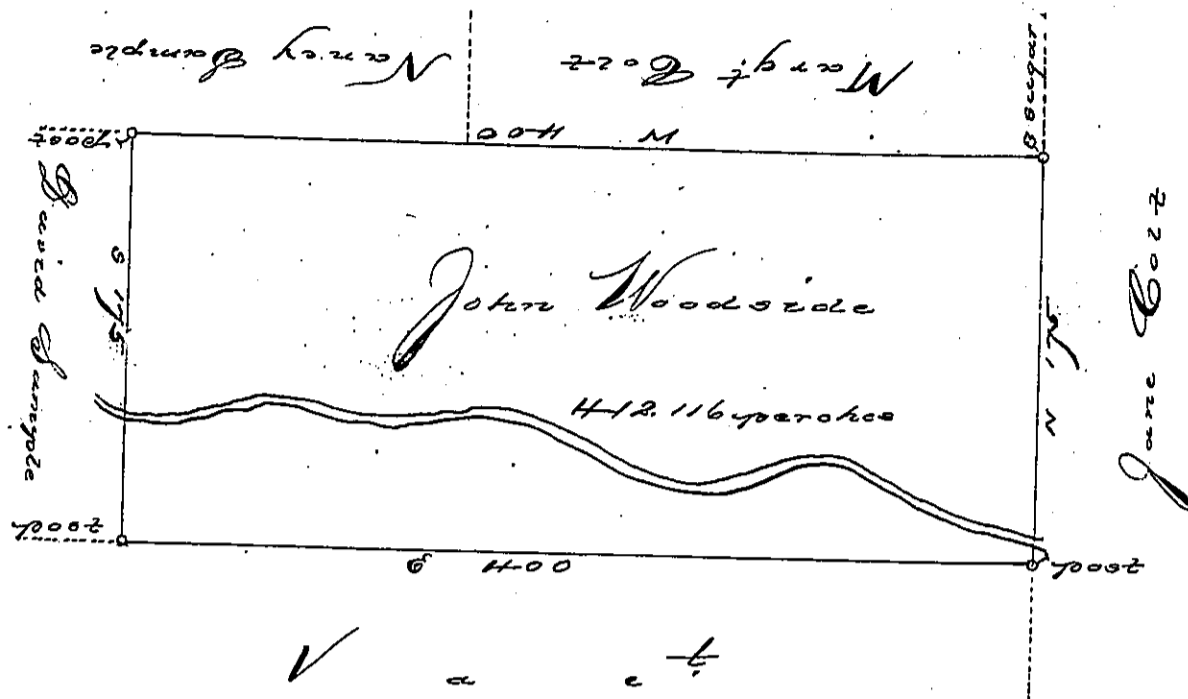 Nancy Sample
Margt Coltz
post
W 400
David Sample
S 175
John Woodside
412.116 perches
N 175
Jane Coltz
post
E 400
post
Vact.